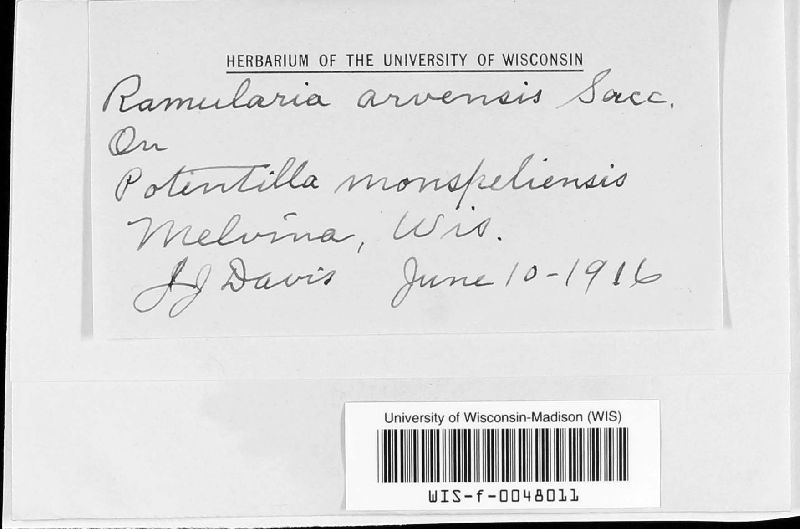 HERBARIUM OF THE UNIVERSITY OF WISCONSIN
Ramularia arvensis Sacc.
On
Potentilla monspeliensis
Melvina, Wis.
JJ Davis June 10-1916
University of Wisconsin-Madison (WIS)
WIS-f-0048011